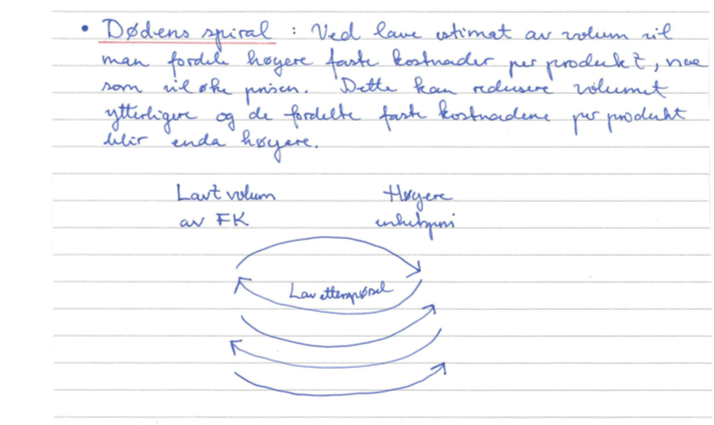 • Dødens spiral : Ved lave estimat av volum vil
man fordele høyere faste kostnader per produkt, noe
som vil øke prisen. Dette kan redusere volumet
ytterligere og de fordelte faste kostnadene per produkt
blir enda høyere.
Lavt volum
av FK
Høyere
enhetspris
Lav etterspørsel